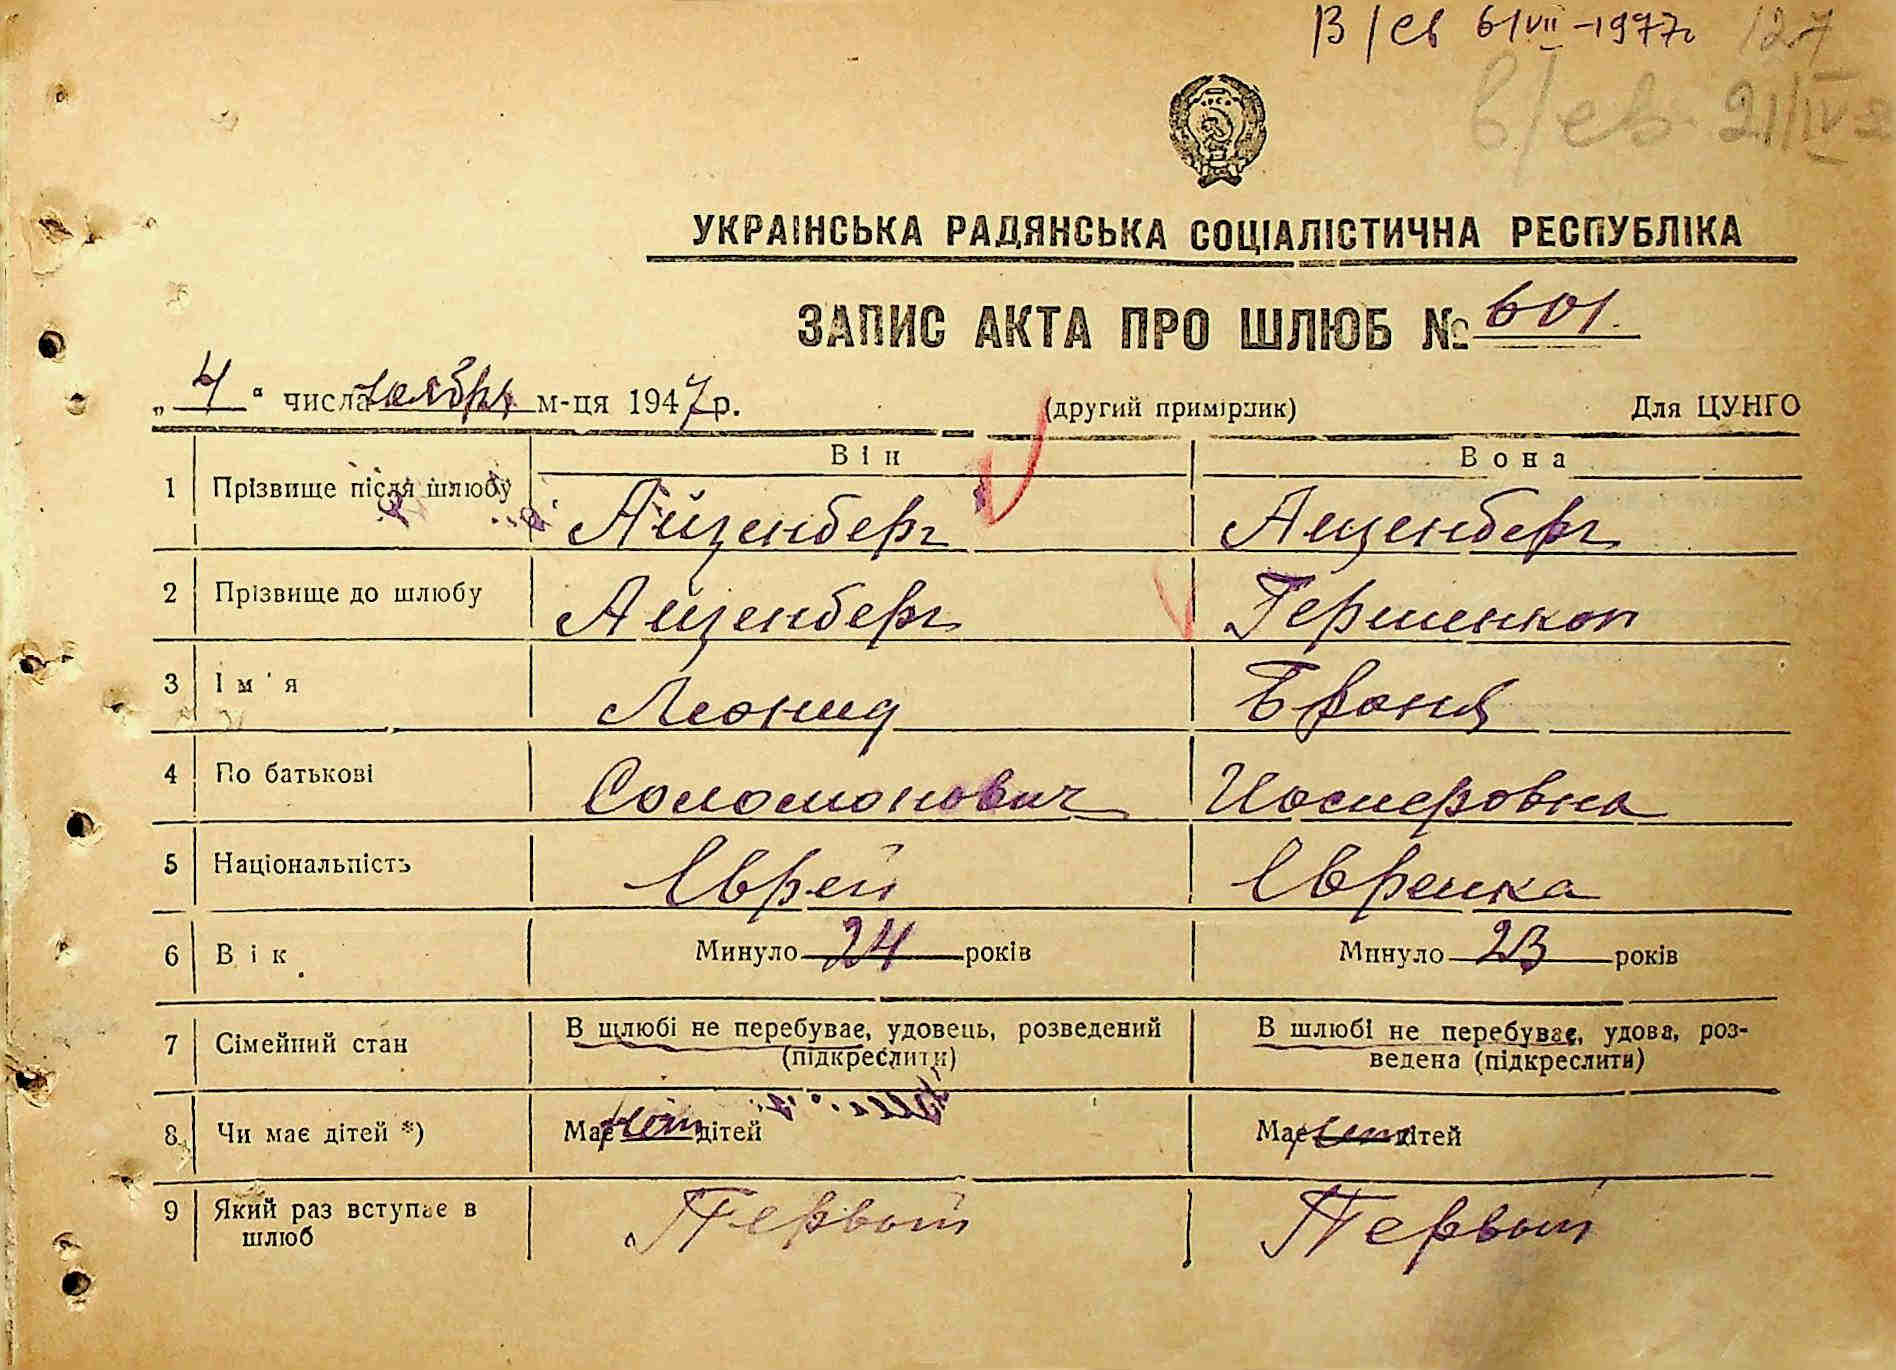 В/св 6/VII-1977г 127
в/св 21/IV
УКРАЇНСЬКА РАДЯНСЬКА СОЦІАЛІСТИЧНА РЕСПУБЛІКА
ЗАПИС АКТА ПРО ШЛЮБ № 601.
„4" числа ноября м-ця 1947 р. (другий примірник) Для ЦУНГО
Він Вона
1 Прізвище після шлюбу Айзенберг Айзенберг
2 Прізвище до шлюбу Айзенберг Гершенкоп
3 Ім'я Леонид Броня
4 По батькові Соломонович Иосиеровна
5 Національність Єврей Єврейка
6 Вік Минуло 24 років Минуло 23 років
7 Сімейний стан В шлюбі не перебуває, удовець, розведений В шлюбі не перебуває, удова, роз-
(підкреслити) ведена (підкреслити)
8 Чи має дітей *) Має нет дітей Має нет дітей
9 Який раз вступає в Первый Первый
шлюб